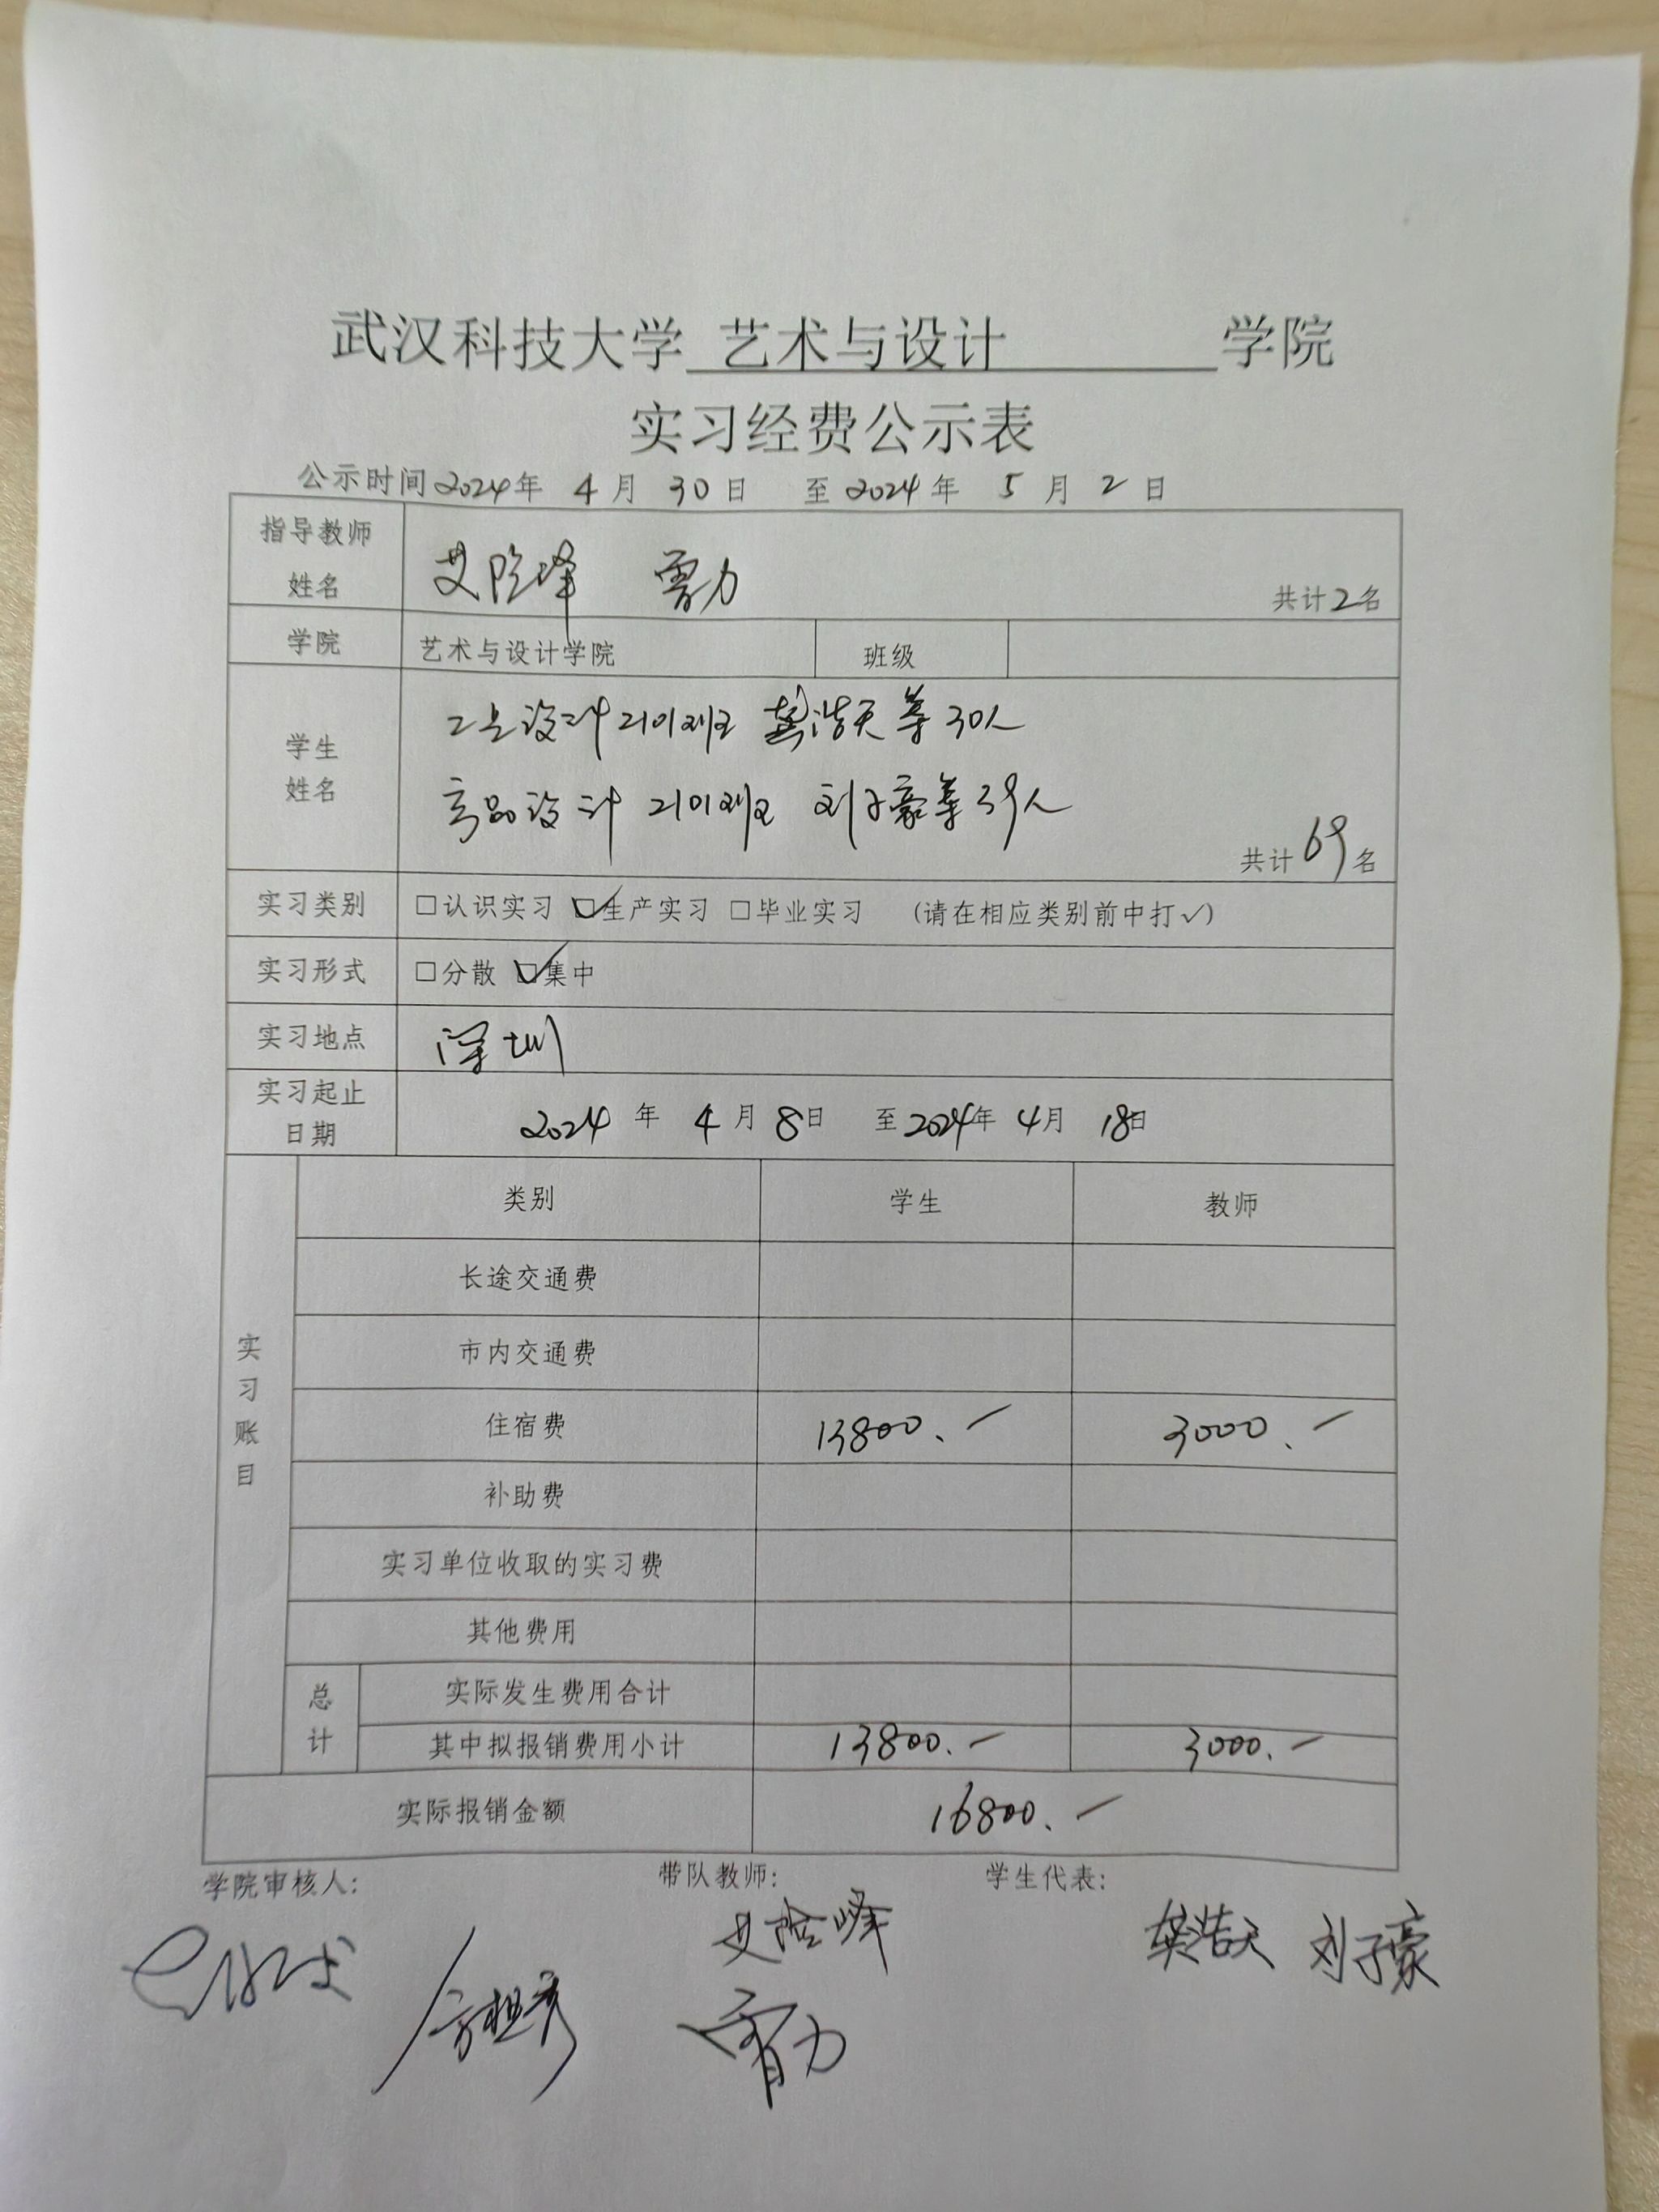 武汉科技大学 艺术与设计 学院
实习经费公示表
公示时间2024年 4月 30日 至2024年 5月 2日
指导教师姓名 艾险峰 雷力 共计2名
学院 艺术与设计学院 班级
学生姓名 工业设计2101班 龚浩天等30人
产品设计 2101班 刘子豪等39人
共计69名
实习类别 □认识实习 ☑生产实习 □毕业实习 (请在相应类别前中打✓)
实习形式 □分散 ☑集中
实习地点 深圳
实习起止日期 2024年 4月 8日 至2024年 4月 18日
实习账目
类别 学生 教师
长途交通费
市内交通费
住宿费 13800.- 3000.-
补助费
实习单位收取的实习费
其他费用
总计 实际发生费用合计
其中拟报销费用小计 13800.- 3000.-
实际报销金额 16800.-
学院审核人: 带队教师: 学生代表:
艾险峰 龚浩天 刘子豪
雷力